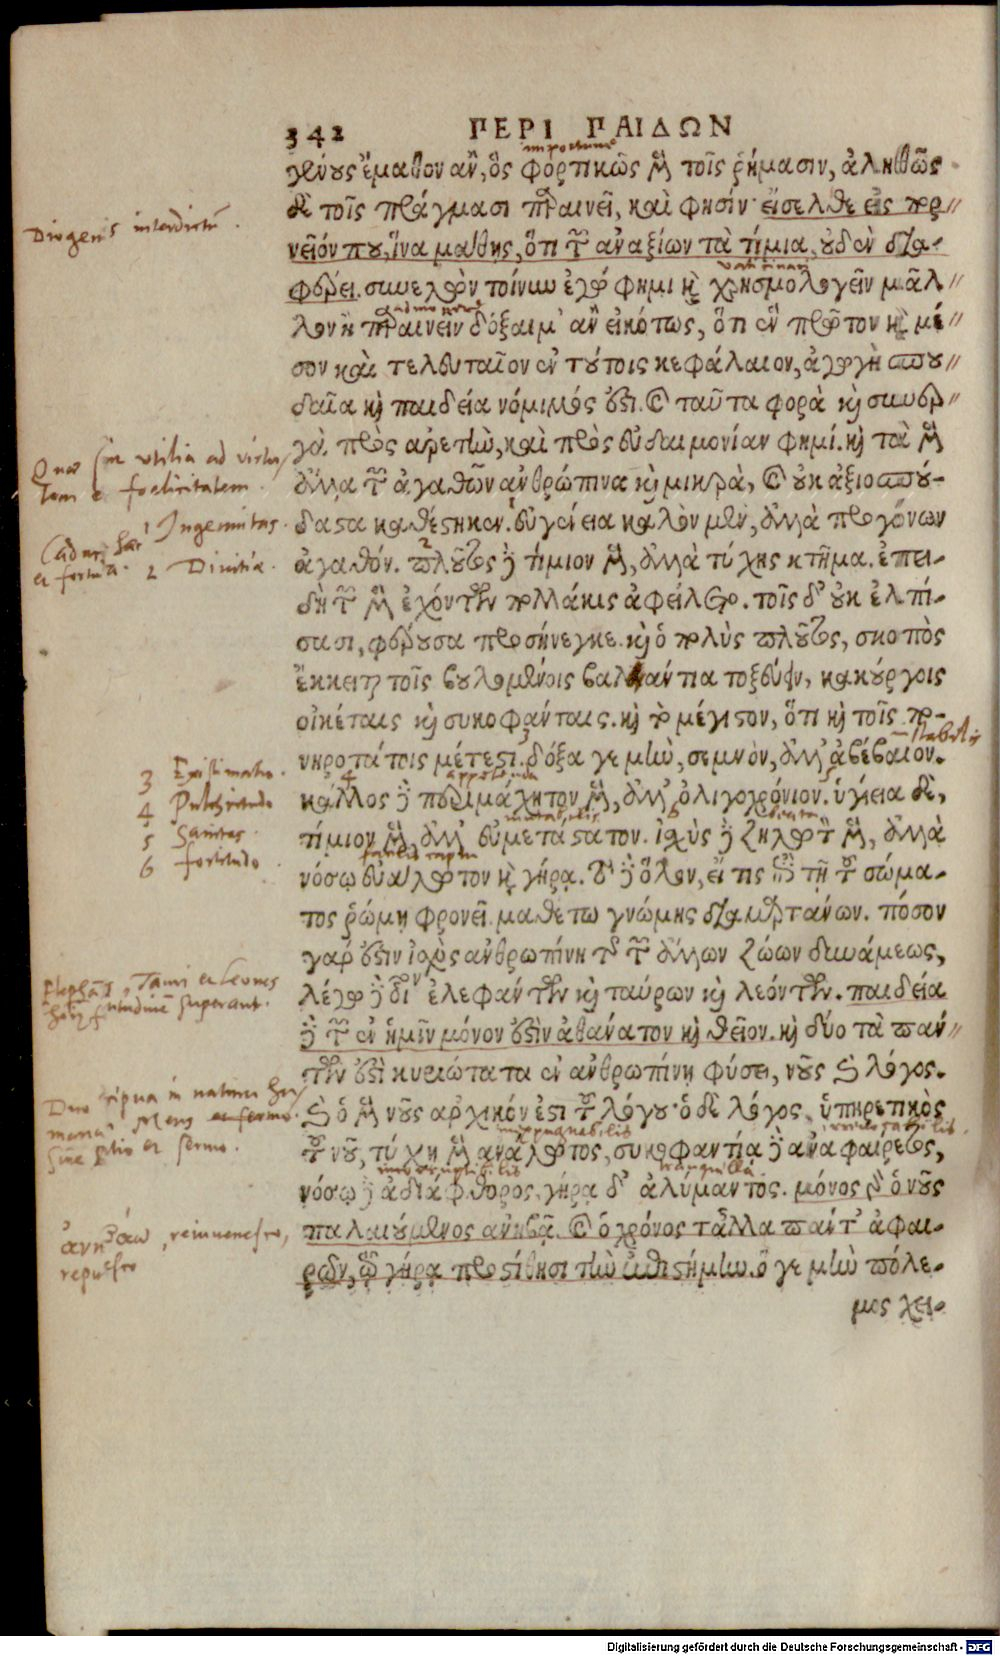 342 ΠΕΡΙ ΠΑΙΔΩΝ
importune
γένους ἔμαθον ἂν, ὃς φορτικῶς μὲν τοῖς ῥήμασιν, ἀληθῶς
Diogenis interdictū.
δὲ τοῖς πράγμασι παραινεῖ, καὶ φησίν· εἴσελθε εἰς πορ//
νεῖόν που, ἵνα μάθης, ὅτι τῶν ἀναξίων τὰ τίμια, οὐδὲν δια-
φέρει. συνελὼν τοίνυν ἐγώ φημι καὶ χρησμολογεῖν μᾶλ//
λον ἢ παραινεῖν δόξαιμ' ἂν εἰκότως, ὅτι ἓν πρῶτον καὶ μέ//
σον καὶ τελευταῖον ἐν τούτοις κεφάλαιον, ἀγωγὴ σπου//
δαῖα καὶ παιδεία νόμιμός ἐστι. καὶ ταῦτα φορὰ καὶ συνερ//
γὰ πρὸς ἀρετὴν, καὶ πρὸς εὐδαιμονίαν φημί. καὶ τὰ μὲν
Quae sint utilia ad virtu/
tem et foelicitatem.
ἄλλα τῶν ἀγαθῶν ἀνθρώπινα καὶ μικρὰ, καὶ οὐκ ἀξιοσπού-
1 Ingenuitas.
δαστα καθέστηκεν. εὐγένεια καλὸν μὲν, ἀλλὰ προγόνων
2 Divitiae.
ἀγαθόν. πλοῦτος δὲ τίμιον μὲν, ἀλλὰ τύχης κτῆμα. ἐπει-
δὴ τῶν μὲν ἐχόντων πολλάκις ἀφείλετο. τοῖς δ' οὐκ ἐλπί-
σασι, φέρουσα προσήνεγκε. καὶ ὁ πολὺς πλοῦτος, σκοπὸς
ἔκκειται τοῖς βουλομένοις βαλάντια τοξεύειν, κακούργοις
οἰκέταις καὶ συκοφάνταις. καὶ τὸ μέγιστον, ὅτι καὶ τοῖς πο-
νηροτάτοις μέτεστι. δόξα γε μὴν, σεμνὸν, ἀλλ' ἀβέβαιον.
3 Existimatio.
4 Pulchritudo
κάλλος δὲ περιμάχητον μὲν, ἀλλ' ὀλιγοχρόνιον. ὑγίεια δὲ,
5 Sanitas.
mutabilis
τίμιον μὲν, ἀλλ' εὐμετάστατον. ἰσχὺς δὲ ζηλωτὸν μὲν, ἀλλὰ
6 fortitudo
νόσῳ εὐάλωτον καὶ γήρᾳ. τὸ δὲ ὅλον, εἴ τις ἐπὶ τῇ τοῦ σώμα-
τος ῥώμη φρονεῖ. μαθέτω γνώμης διαμαρτάνων. πόσον
γάρ ἐστιν ἰσχὺς ἀνθρωπίνη τῆς τῶν ἄλλων ζώων δυνάμεως,
Elephāti, Tauri et Leones
hoīes fortitudinē superant.
λέγω δὲ οἷον ἐλεφάντων καὶ ταύρων καὶ λεόντων. παιδεία
δὲ τῶν ἐν ἡμῖν μόνον ἐστὶν ἀθάνατον καὶ θεῖον. καὶ δύο τὰ πάν//
των ἐστὶ κυριώτατα ἐν ἀνθρωπίνη φύσει, νοῦς καὶ λόγος.
καὶ ὁ μὲν νοῦς ἀρχικόν ἐστι τοῦ λόγου· ὁ δὲ λόγος, ὑπηρετικὸς
inexpugnabilis
τοῦ νοῦ, τύχη μὲν ἀνάλωτος, συκοφαντίᾳ δὲ ἀναφαίρετος,
incorruptibilis
νόσῳ δὲ ἀδιάφθορος, γήρᾳ δ' ἀλύμαντος. μόνος γὰρ ὁ νοῦς
παλαιούμενος ἀνηβᾷ. καὶ ὁ χρόνος τἆλλα πάντ' ἀφαι-
ἀνηβάω, reiuuenesco,
repubesco
ρῶν, τῷ γήρᾳ προστίθησι τὴν ἐπιστήμην. ὅ γε μὴν πόλε-
μος χει-
Digitalisierung gefördert durch die Deutsche Forschungsgemeinschaft - DFG